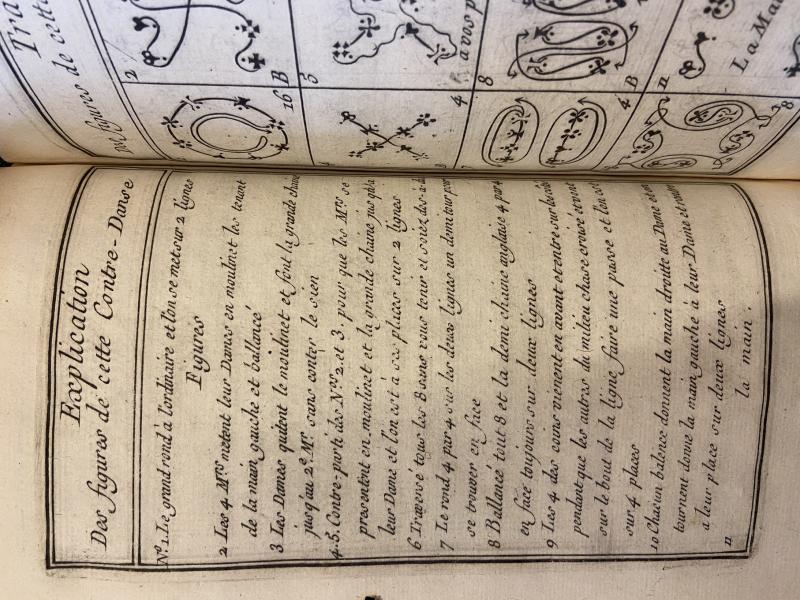 Explication
Des figures de cette Contre-Danse
N.º 1. Le grand rond à l'ordinaire et l'on se met sur 2 lignes
Figures
2 Les 4 M.rs mettent leur Dames en moulinet les tenant
de la main gauche et ballancé
3 Les Dames quitent le moulinet et font la grande chaine
jusq'au 2.e M.r sans conter le sien
4.5. Contre-partie des N.os 2. et 3. pour que les M.rs se
presentent en moulinet et la grande chaine jusqu'à
leur Dame et l'on est à ses places sur 2 lignes
6 Traversé tous les 8 sans vous tenir et
7 Le rond 4 par 4 sur les deux lignes un demi tour pour
se trouver en face
8 Ballancé tout 8 et la demi chaine anglaise 4 par 4
en face toujours sur deux lignes
9 Les 4 des coins vienent en avant et entre sur les
pendant que les autres du milieu chasé croisé et vont
sur le bout de la ligne, faire une passe et l'on est
sur 4 places
10 Chacun balence donnent la main droitte au Dame et
tournent donne la main gauche à leur Dame et
a leur place sur deux lignes
11 la main.
Tra
figures de cette
2
B
5
a vos p
8
B
11
La Mai
16
4
4
8